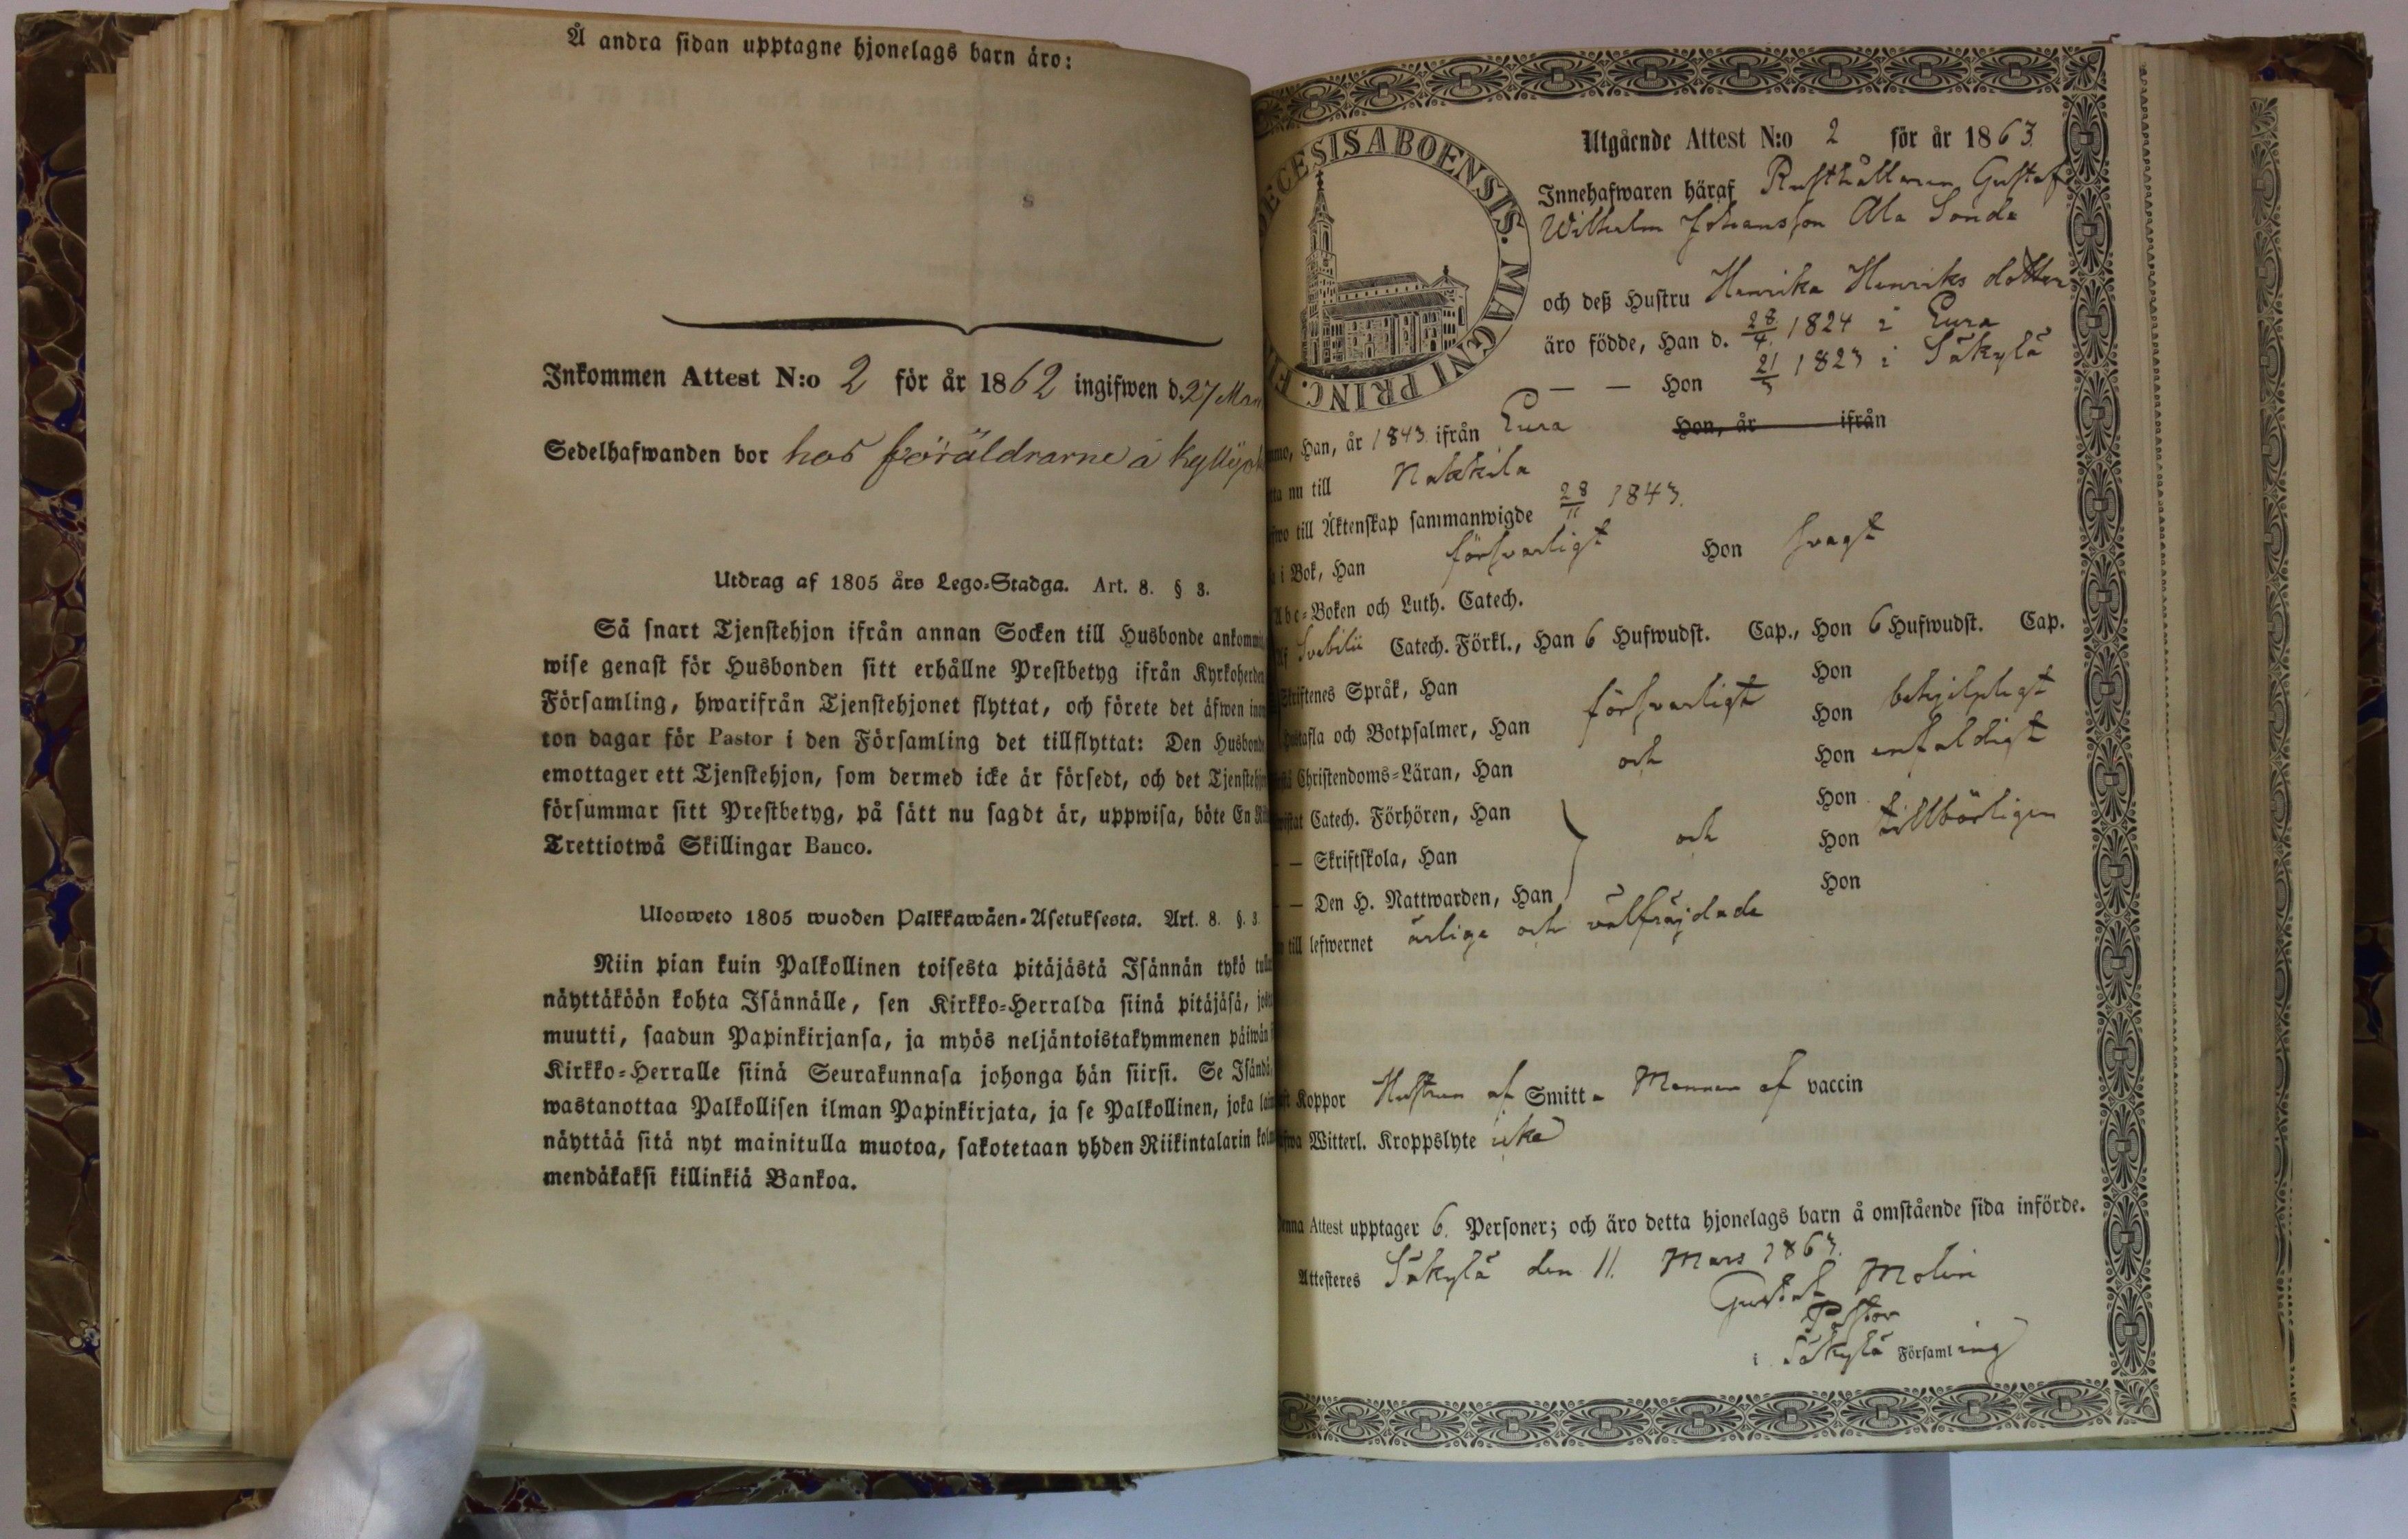 Å andra sidan upptagne hjonelags barn äro:
Inkommen Attest N:o 2 för år 1862 ingifwen d. 27
Sedelhafwanden bor hos föräldrarne å
Utdrag af 1805 års Lego-Stadga. Art. 8. § 3.
Så snart Tjenstehjon ifrån annan Socken till Husbonde
wise genast för Husbonden sitt erhållne Prestbetyg ifrån
Församling, hwarifrån Tjenstehjonet flyttat, och förete det äfwen
ton dagar för Pastor i den Församling det tillflyttat: Den
emottager ett Tjenstehjon, som dermed icke är försedt, och det
försummar sitt Prestbetyg, på sätt nu sagdt är, uppwisa, böte En
Trettiotwå Skillingar Banco.
Ulosweto 1805 wuoden Palkkawäen-Asetuksesta. Art. 8. §. 3
Niin pian kuin Palkollinen toisesta pitäjästä Isännän tykö
näyttäköön kohta Isännälle, sen Kirkko-Herralda siinä pitäjäsä,
muutti, saadun Papinkirjansa, ja myös neljäntoistakymmenen
Kirkko-Herralle siinä Seurakunnasa johonga hän siirsi. Se
wastanottaa Palkollisen ilman Papinkirjata, ja se Palkollinen, joka
näyttää sitä nyt mainitulla muotoa, sakotetaan yhden Riikintalarin
mendäkaksi killinkiä Bankoa.
ECESIS ABOENSIS. MAGNI PRINC. FI
Utgående Attest N:o 2 för år 1863
Innehafwaren häraf Rusthållaren Gustaf
Wilhelm Johansson Ala Sonda
och deß Hustru Henrika Henriks dotter
äro födde, Han d. 28/4 1824 i Eura
— — Hon 21/3 1823 i Säkylä
Han, år 1843 ifrån Eura Hon, år ifrån
nu till Nakkila
till Äktenskap sammanwigde 28/11 1843.
i Bok, Han försvarligt Hon svagt
Abc-Boken och Luth. Catech.
Svebilii Catech. Förkl., Han 6 Hufwudst. Cap., Hon 6 Hufwudst. Cap.
Skriftenes Språk, Han Hon
och Botpsalmer, Han försvarligt Hon behjelpligt
Christendoms-Läran, Han och Hon enfaldigt
Catech. Förhören, Han Hon
— Skriftskola, Han och Hon tillbörligen
— Den H. Nattwarden, Han Hon
till lefwernet ärliga och välfräjdade
Koppor Hustrun af Smitt - Mannen af vaccin
Witterl. Kroppslyte icke
Denna Attest upptager 6. Personer; och äro detta hjonelags barn å omstående sida införde.
Attesteres Säkylä den 11. Mars 1863.
Gustaf Molin
Pastor
i Säkylä Församling